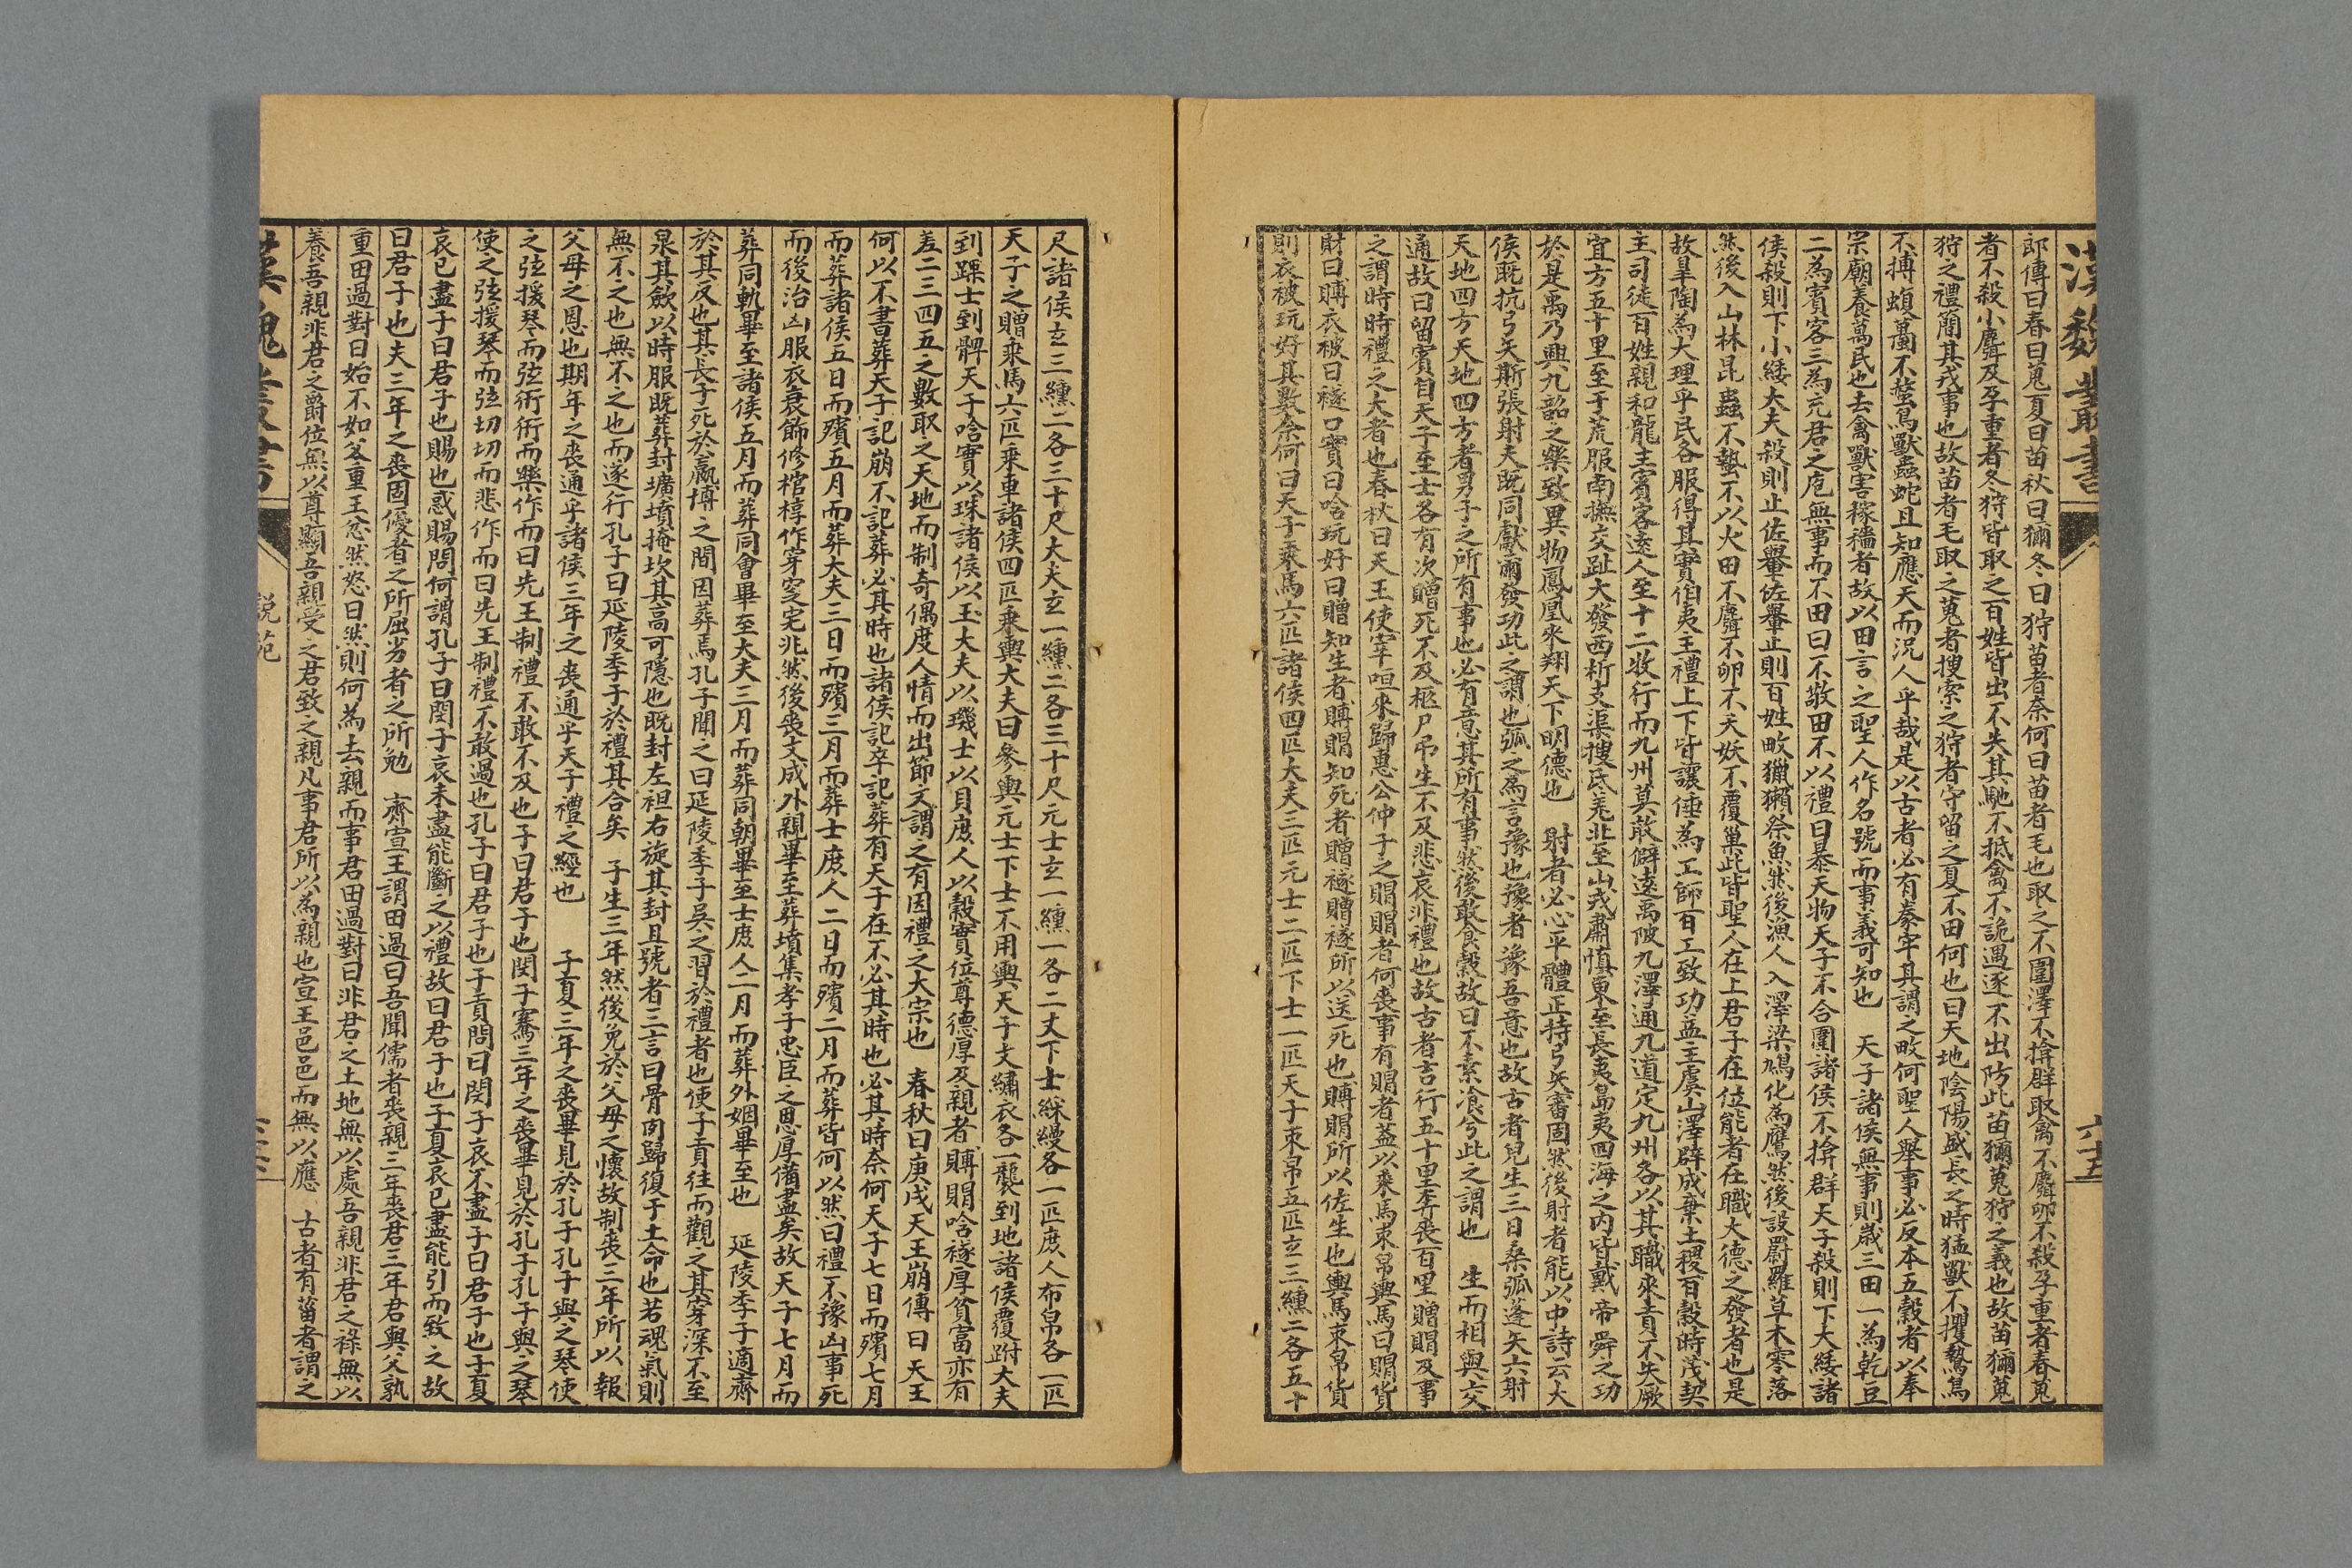 漢魏叢書
六十五
郎傳曰春曰蒐夏曰苗秋曰獮冬曰狩苗者奈何曰苗者毛也取之不圍澤不揜群取禽不麛卵不殺孕重者春蒐
者不殺小麛及孕重者冬狩皆取之百姓皆出不失其馳不抵禽不詭遇逐不出防此苗獮蒐狩之義也故苗獮蒐
狩之禮簡其戎事也故苗者毛取之蒐者搜索之狩者守留之夏不田何也曰天地陰陽盛長之時猛獸不攫鷙鳥
不搏蝮蠆不螫鳥獸蟲蛇且知應天而況人乎哉是以古者必有豢牢其謂之畋何聖人舉事必反本五穀者以奉
宗廟養萬民也去禽獸害稼穡者故以田言之聖人作名號而事義可知也　天子諸侯無事則歲三田一為乾豆
二為賓客三為充君之庖無事而不田曰不敬田不以禮曰暴天物天子不合圍諸侯不揜群天子殺則下大緌諸
侯殺則下小緌大夫殺則止佐轝佐轝止則百姓畋獵獺祭魚然後漁人入澤梁鳩化為鷹然後設罻羅草木零落
然後入山林昆蟲不蟄不以火田不麛不卵不夭妖不覆巢此皆聖人在上君子在位能者在職大德之發者也是
故皐陶為大理平民各服得其實伯夷主禮上下皆讓倕為工師百工致功益主虞山澤辟成棄主稷百穀時茂契
主司徒百姓親和龍主賓客遠人至十二牧行而九州莫敢僻違禹陂九澤通九道定九州各以其職來貢不失厥
宜方五十里至于荒服南撫交趾大發西析支渠搜氐羌北至山戎肅慎東至長夷島夷四海之內皆戴帝舜之功
於是禹乃興九韶之樂致異物鳳凰來翔天下明德也　射者必心平體正持弓矢審固然後射者能以中詩云大
侯既抗弓矢斯張射夫既同獻爾發功此之謂也弧之為言豫也豫者豫吾意也故古者兒生三日桑弧蓬矢六射
天地四方天地四方者男子之所有事也必有意其所有事然後敢食穀故曰不素飡兮此之謂也　生而相與交
通故曰留賓自天子至士各有次贈死不及柩尸弔生不及悲哀非禮也故古者吉行五十里奔喪百里贈賵及事
之謂時時禮之大者也春秋曰天王使宰咺來歸惠公仲子之賵賵者何喪事有賵者蓋以乘馬束帛輿馬曰賵貨
財曰賻衣被曰襚口實曰唅玩好曰贈知生者賻賵知死者贈襚贈襚所以送死也賻賵所以佐生也輿馬束帛貨
則衣被玩好其數奈何曰天子乘馬六匹諸侯四匹大夫三匹元士二匹下士一匹天子束帛五匹玄三纁二各五十
尺諸侯玄三纁二各三十尺大夫玄一纁二各三十尺元士玄一纁一各二丈下士綵縵各一匹庶人布帛各一匹
天子之贈乘馬六匹乘車諸侯四匹乘輿大夫曰參輿元士下士不用輿天子文繡衣各一襲到地諸侯覆跗大夫
到踝士到髀天子唅實以珠諸侯以玉大夫以璣士以貝庶人以穀實位尊德厚及親者賻賵唅襚厚貧富亦有
差二三四五之數取之天地而制奇偶度人情而出節文謂之有因禮之大宗也　春秋曰庚戌天王崩傳曰天王
何以不書葬天子記崩不記葬必其時也諸侯記卒記葬有天子在不必其時也必其時奈何天子七日而殯七月
而葬諸侯五日而殯五月而葬大夫三日而殯三月而葬士庶人二日而殯二月而葬皆何以然曰禮不豫凶事死
而後治凶服衣衰飾修棺椁作穿窆宅兆然後喪文成外親畢至葬墳集孝子忠臣之恩厚備盡矣故天子七月而
葬同軌畢至諸侯五月而葬同會畢至大夫三月而葬同朝畢至士庶人二月而葬外姻畢至也　延陵季子適齊
於其反也其長子死於嬴博之間因葬焉孔子聞之曰延陵季子吳之習於禮者也使子貢往而觀之其穿深不至
泉其斂以時服既葬封壙墳掩坎其高可隱也既封左袒右旋其封且號者三言曰骨肉歸復于土命也若魂氣則
無不之也無不之也而遂行孔子曰延陵季子於禮其合矣　子生三年然後免於父母之懷故制喪三年所以報
父母之恩也期年之喪通乎諸侯三年之喪通乎天子禮之經也　子夏三年之喪畢見於孔子孔子與之琴使
之弦援琴而弦衎衎而樂作而曰先王制禮不敢不及也子曰君子也閔子騫三年之喪畢見於孔子孔子與之琴
使之弦援琴而弦切切而悲作而曰先王制禮不敢過也孔子曰君子也子貢問曰閔子哀不盡子曰君子也子夏
哀已盡子曰君子也賜也惑賜問何謂孔子曰閔子哀未盡能斷之以禮故曰君子也子夏哀已盡能引而致之故
曰君子也夫三年之喪固優者之所屈劣者之所勉　齊宣王謂田過曰吾聞儒者喪親三年喪君三年君與父孰
重田過對曰殆不如父重王忿然怒曰然則何為去親而事君田過對曰非君之土地無以處吾親非君之祿無以
養吾親非君之爵位無以尊顯吾親受之君致之親凡事君所以為親也宣王邑邑而無以應　古者有菑者謂之
漢魏叢書
說苑